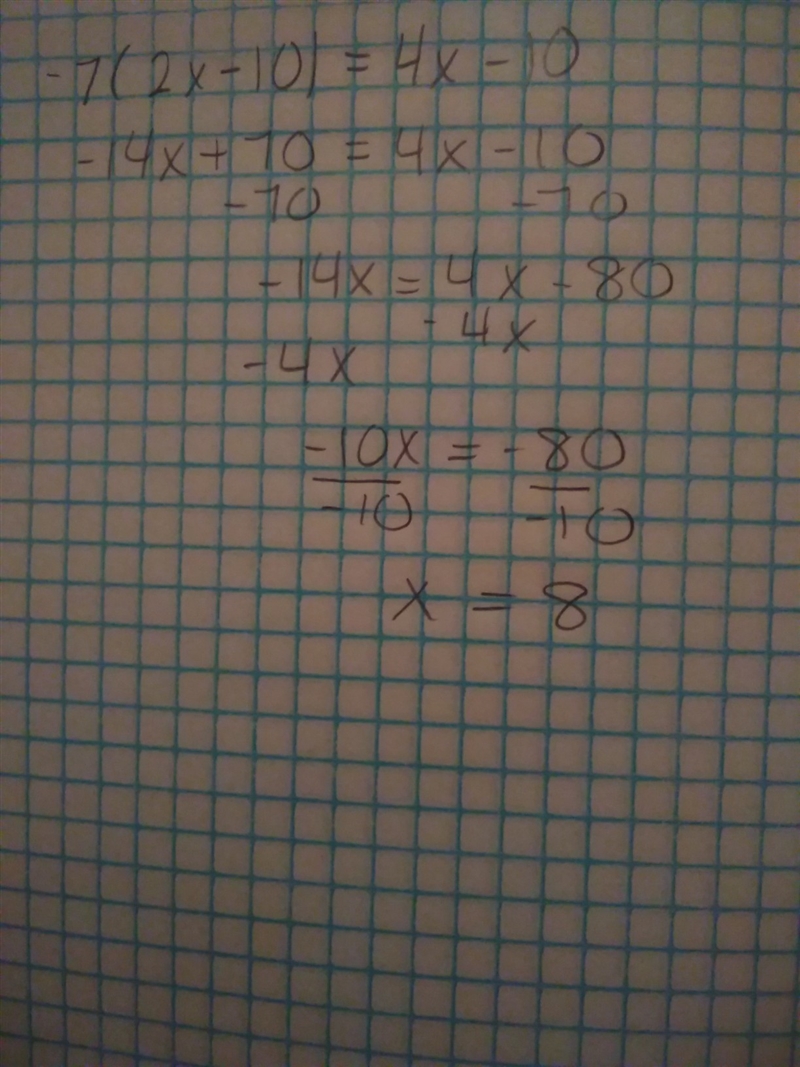 -7(2x-10) = 4x-10
-14x+70 = 4x-10
-70 -70
-14x = 4x-80
-4x
-4x
-10x = -80
-10 -10
x = 8